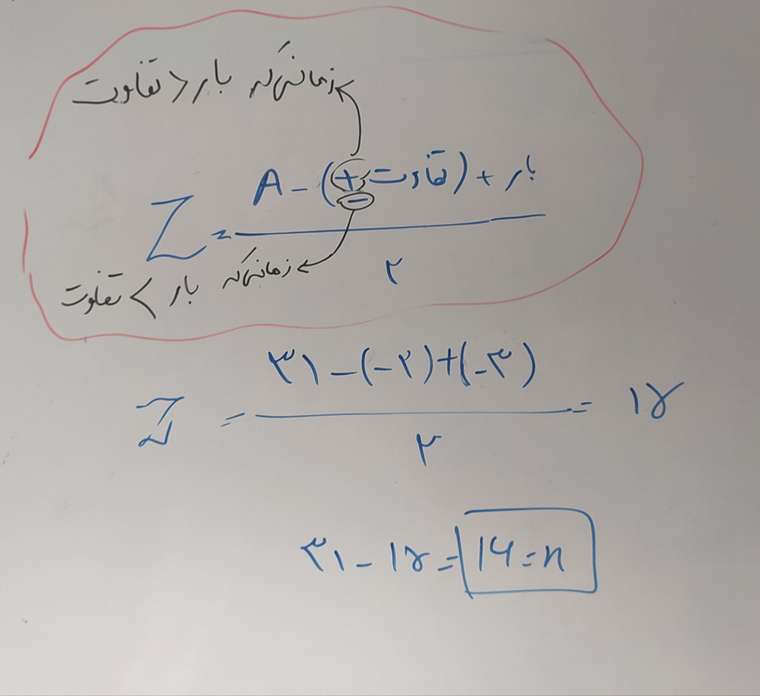 زمانی که بار > تفاوت
Z = A - (± تفاوت) + بار / ۲
زمانی که بار < تفاوت
Z = ۳۱ - (-۲) + (-۳) / ۲ = ۱۵
۳۱ - ۱۵ = ۱۶ = n